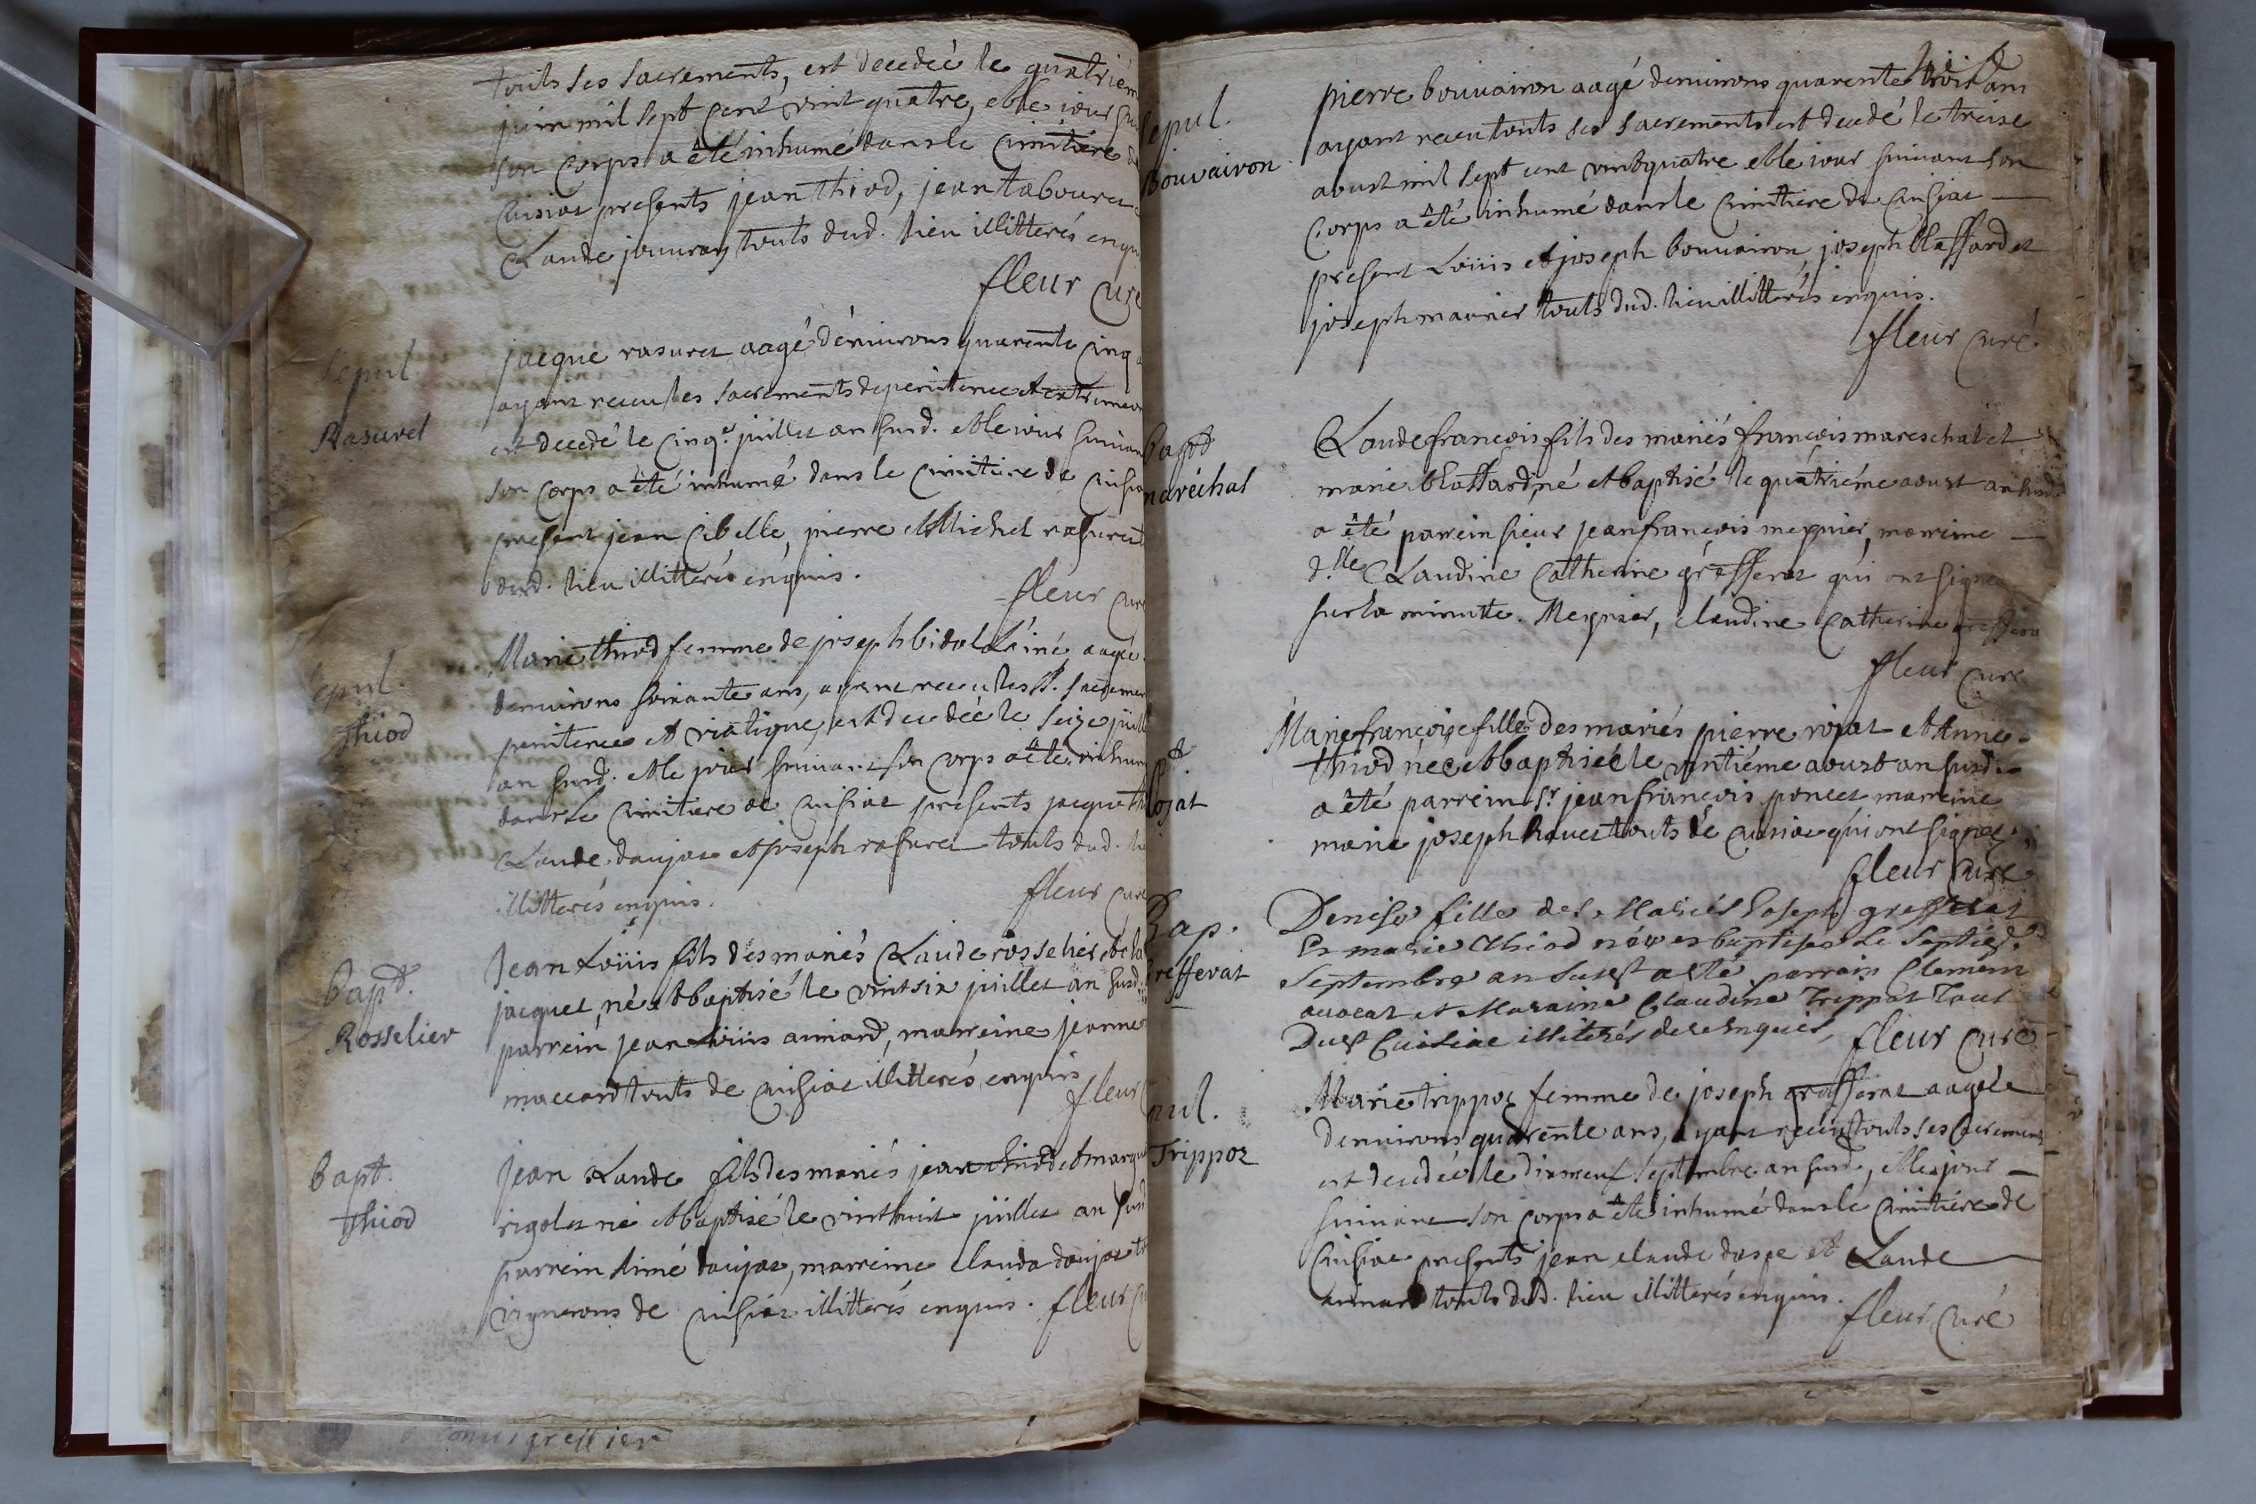 touts ses sacrements, est decedée le quatriém
juin mil sept cent vint quatre, et le iour sui
son corps a êté inhumé dans le cimitiere de
Cuisiat presents jean thiod, jean tabouret
Claude jouvray touts dud. lieu illitterés enqui
fleur curé
Sepul.
Rasurel
jacque rasurel aagé d'environs quarente cinq a
ayant receu les sacrements de penitence et extremeon
est decedé le cinq.e juillet an susd. et le iour suivan
son corps a êté inhumé dans le cimitiere de cuisia
present jean Cibelle, pierre et Michel rasurel
dud. lieu illitterés enquis.
fleur curé
sepul.
thiod
Marie thiod femme de joseph bidal L'ainé, aagée
denvirons soixante ans, ayant receu les SS. sacremen
penitence et viatique, est decedée le seize juill
an susd. et le jour suivant son corps a êté inhum
dans le cimitiere de cuisiat presents jacque th
Claude daujat et joseph rasurel touts dud. li
illitterés enquis.
fleur curé
bapt.
Rosselier
Jean Loüis fils des mariés Claude rosselier et cla
jacquet, né et baptisé le vint six juillet an susd.
parrein jean Loüis amiard, marreine jeanne
maccard touts de cuisiat illitterés enquis
fleur c
bapt.
thiod
Jean Claude fils des mariés jean thiod et margue
rigolet né et baptisé le vinthuit juillet an susd
parrein Aimé daujat, marreine Clauda daujat to
vignerons de cuisiat illitterés enquis. fleur cu
sepul.
Bouvairon.
pierre bouvairon aagé denvirons quarente trois ans
ayant receu touts ses sacrements est decedé le treise
aoust mil sept cent vintquatre et le iour suivant son
corps a êté inhumé dans le cimitiere de cuisiat
present Loüis et joseph bouvairon, joseph blaffard et
joseph marnier touts dud. lieu illitterés enquis.
fleur curé.
bapt
maréchal
Claude francois fils des mariés françois mareschal et
marie blaffard, né et baptisé le quatriéme aoust an susd.
a êté parrein sieur jean françois meynier, marreine
d.lle Claudine Catherine grefferat qui ont signé
sur la minutte. Meynier, claudine catherine grefferat
fleur curé
bapt
rojat
Marie françoise fille des mariés pierre rojat et Anne
thiod née et baptisée le vintiéme aoust an susd.
a êté parrein Sr jean françois poncet marreine
marie joseph Ravet touts de cuisiat qui ont signé.
fleur curé
Bap.
greffevat
Denise fille des Mariés Joseph grefferat
Et marie thiod née et baptisée Le Septies.
Septembre an Susd a esté parrain Clement
avocat et Maraine Claudine Trippoz Tous
Dud Cuisiac illiterés de ce Enquis, fleur curé
Sepul.
Trippoz
Marie trippoz femme de joseph grefferat aagée
denvirons quarente ans, ayant receu touts ses sacrements
est decedée le dixneuf septembre an susd., et le jour
suivant son corps a êté inhumé dans le cimitiere de
Cuisiat presents jean claude daspe et Claude
amiard touts dud. lieu illitterés enquis.
fleur curé
commis greffier